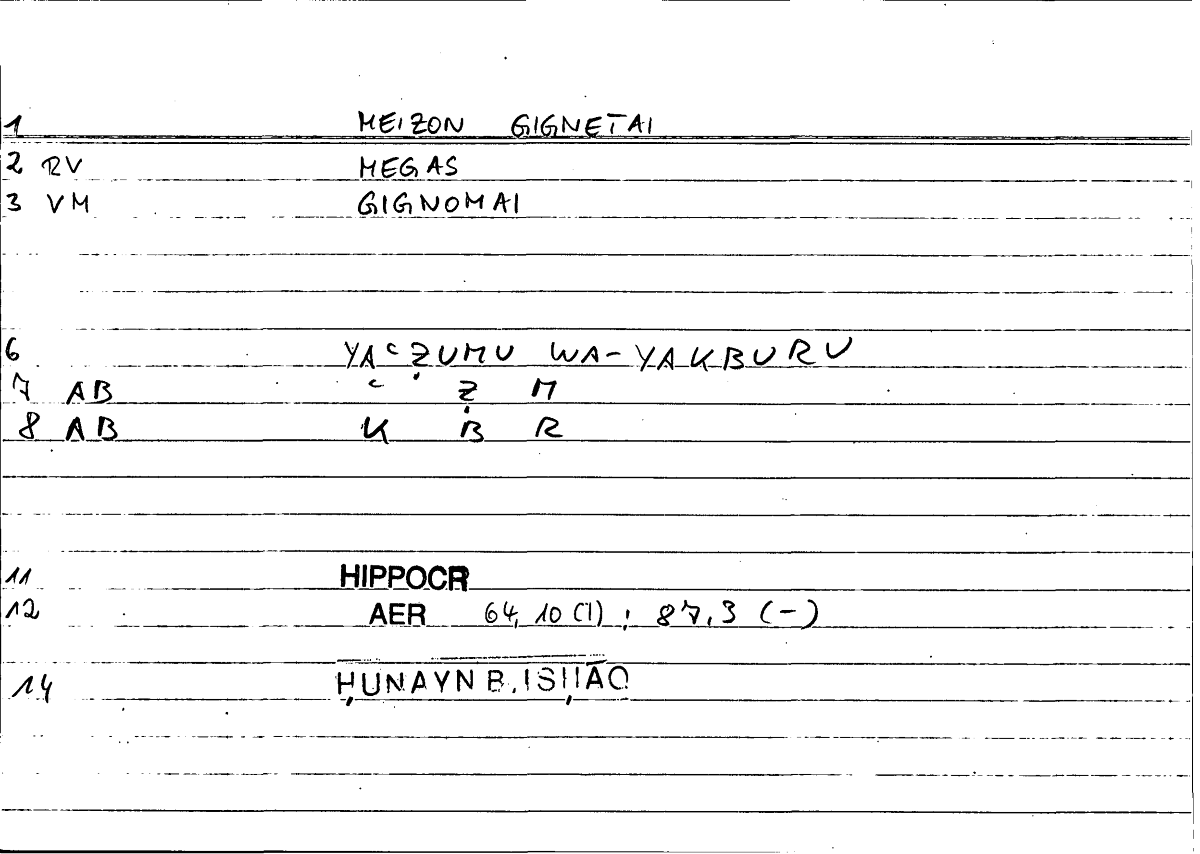 1 MEIZON GIGNETAI
2 RV MEGAS
3 VM GIGNOMAI
6 YAʿẒUMU WA-YAKBURU
7 AB ʿ Ẓ M
8 AB K B R
11 HIPPOCR
12 AER 64,10 (1) ; 87,3 (-)
14 ḤUNAYN B. ISḤĀQ